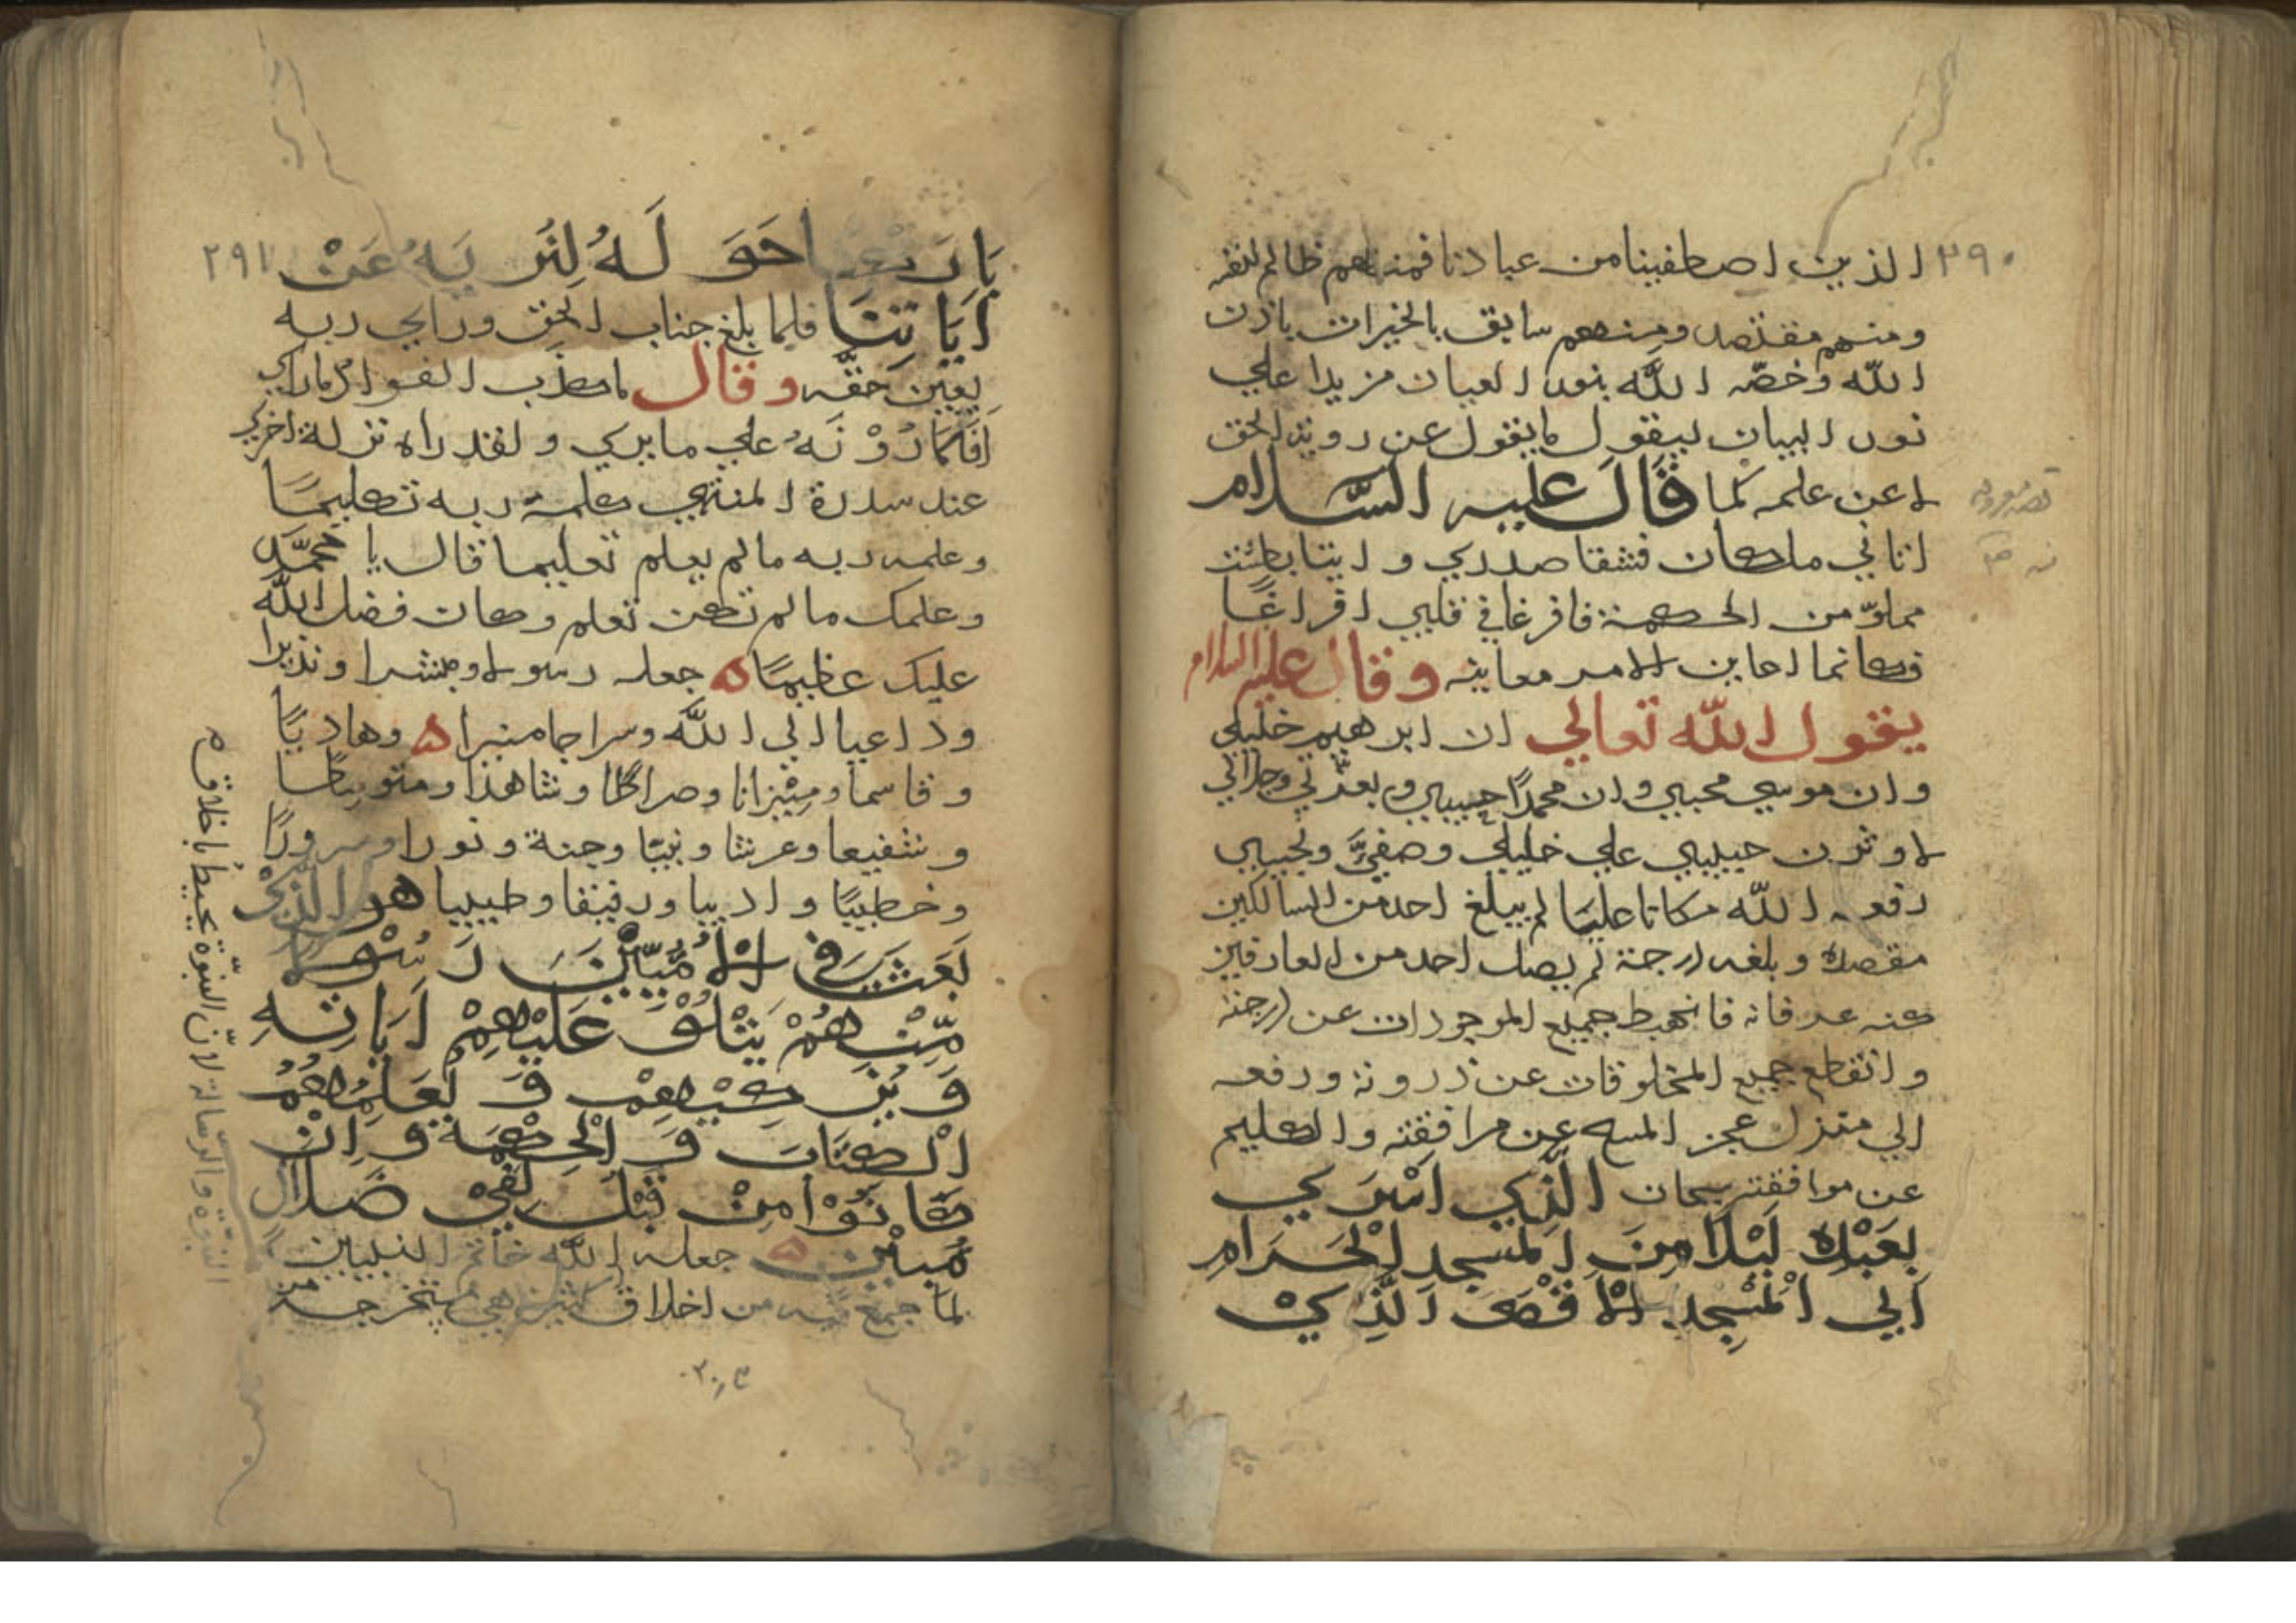 ٢٩٠
الذين اصطفينا من عبادنا فمنهم ظالم لنفسه
ومنهم مقتصد ومنهم سابق بالخيرات باذن
الله وخصّه الله بنور العيان مزيدا علي
نور البيان ليقول ما يقول عن روية الحق
لا عن علمه كما قَالَ عليه السَّلام
اتاني ملكان فشقا صدري و اتيتا بطشت
مملوّ من الحكمة فافرغا في قلبي افراغًا
فكانما اعاين الامر معاينه وقال عليه السلام
يقول الله تعالي ان ابرهيم خليلي
وان موسي محببي وان محمدًا حبيبي وبعزّتي وجلالي
لاوثرن حبيبي علي خليلي وصفيَّ ونجيبي
رفعه الله مكانا عليًا لم يبلغ احد من السالكين
مقصده وبلغه درجة لم يصل احد من العارفين
كنه عرفانه فانهبط جميع الموجودات عن درجته
وانقطع جميع المخلوقات عن ذروته ورفعه
الي منزل عجز المسيح عن مرافقته والكليم
عن موافقته سبحان الَّذِي اَسْرَي
بِعَبْدِهِ لَيْلًا مِنَ الْمَسْجِدِ الْحَرَامِ
اِلي الْمَسْجِدِ الْاَقْصَي الَّذِيْ
٢٩١
بَارَكْنَا حَوَلَهُ لِنُرِيَهُ عَنْ
اَيَاتِنَا فلما بلغ جناب الحق وراي ربه
بعين حقّه وقال ما كذب الفواد ما راي
اَفَتُمَارُوْنَهُ علي ما يري ولقد راه نزلة اخري
عند سدرة المنتهي كلمه ربه تكليمًا
وعلمه ربه ما لم يعلم تعليما قال يا محمَّد
وعلمك ما لم تكن تعلم وكان فضل الله
عليك عظيمًا ه جعله رسولا ومبشرا ونذيرا
وداعيا الي الله وسراجا منيرا ه وهاديًا
وقاسما ومِيْزانا وصراطا وشاهدا ومتوسطا
وشفيعا وعرشا ونبيًا وجنة ونورا وسرورًا
وخطيبًا واديبا ورفيقا وطبيبا هو الَّذِيْ
بَعَثَ فِي الْاُمِّيِّيْنَ رَسُوْلًا
مِّنْهُمْ يَتْلُوْ عَلَيْهِمْ اَيَاتِهِ
وَيُزَكِّيْهِمْ وَيُعَلِّمُهُمُ
الْكِتَابَ وَالْحِكْمَةَ وَاِنْ
كَانُوْا مِنْ قَبْلُ لَفِيْ ضَلَالٍ
مُبِيْنٍ ه جعله الله خاتم النبيين
لما جمع فيه من اخلاق
النبوّة والرسالة لانّ النبوّة تحيط باخلاق